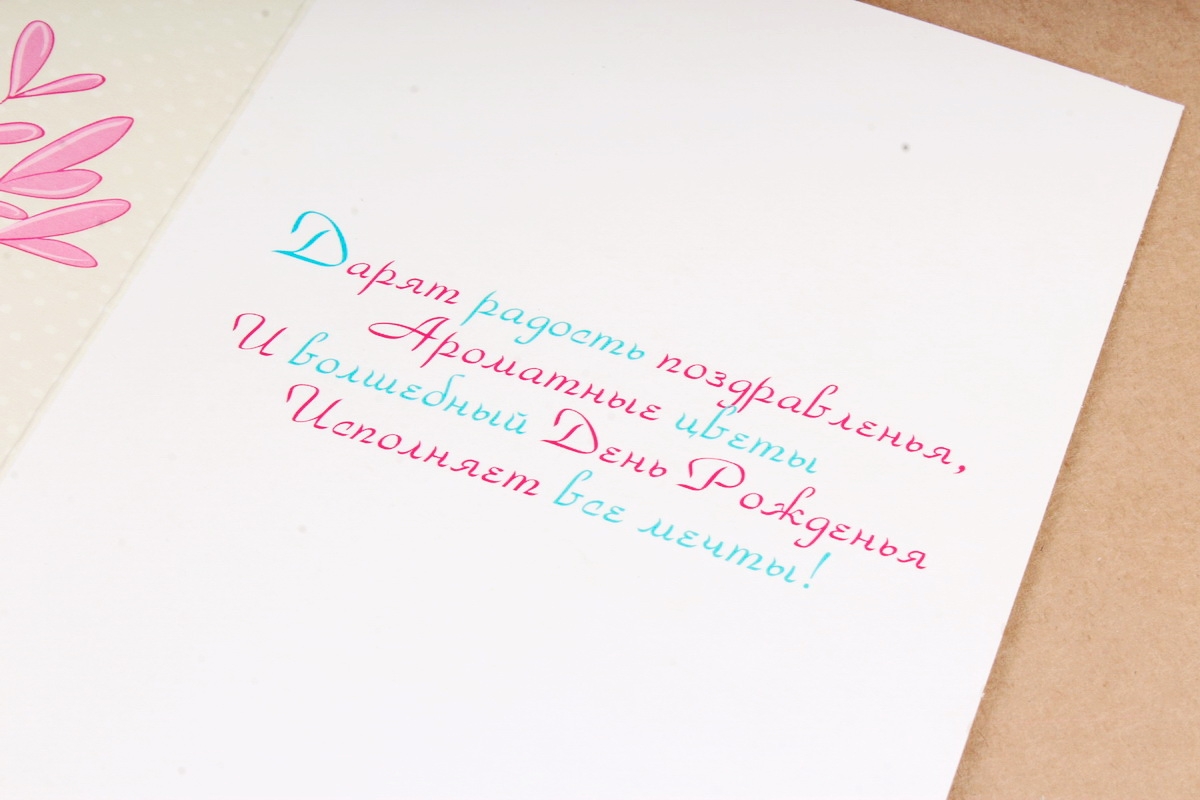 Дарят радость поздравленья,
Ароматные цветы
И волшебный День Рожденья
Исполняет все мечты!